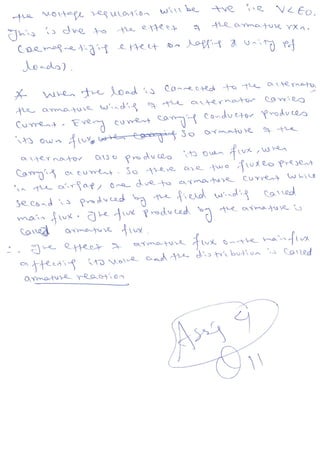 the voltage regulation will be +ve i.e V<E0.
This is due to the effect of the armature rxn.
(demagnetizing effect on lagging & unity pf
loads).
* When the load is connected to the alternator
the armature winding of the alternator carries
current. Every current carrying conductor produces
its own flux, when carrying So armature of the
alternator also produces its own flux, when
carrying a current. So there are two fluxes present
in the airgap, one due to armature current while
second is produced by the field winding called
main flux. The flux produced by the armature is
called armature flux.
∴ The effect of armature flux on the main flux
affecting its value and the distribution is called
armature reaction
Assig 4
11